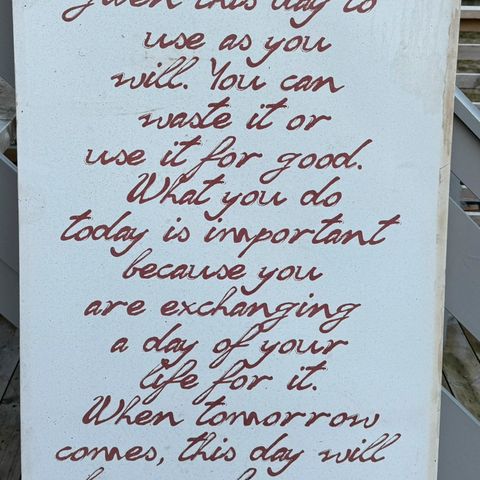 given this day to
use as you
will. You can
waste it or
use it for good.
What you do
today is important
because you
are exchanging
a day of your
life for it.
When tomorrow
comes, this day will